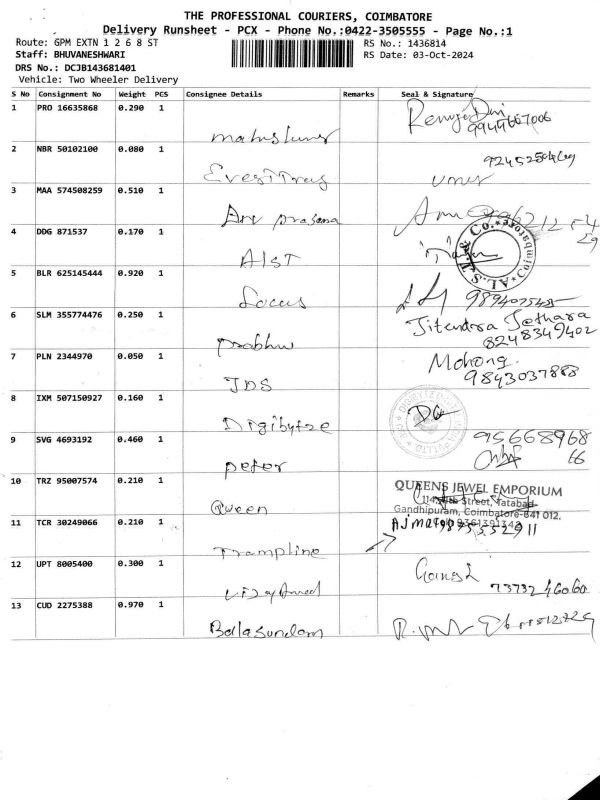 THE PROFESSIONAL COURIERS, COIMBATORE
Delivery Runsheet - PCX - Phone No.:0422-3505555 - Page No.:1
Route: GPM EXTN 1 2 6 8 ST RS No.: 1436814
Staff: BHUVANESHWARI RS Date: 03-Oct-2024
DRS No.: DCJB143681401
Vehicle: Two Wheeler Delivery
S No Consignment No Weight PCS Consignee Details Remarks Seal & Signature
1 PRO 16635868 0.290 1
9944667006
2 NBR 50102100 0.080 1
3 MAA 574508259 0.510 1
4 DDG 871537 0.170 1
AIST
5 BLR 625145444 0.920 1
Locus
6 SLM 355774476 0.250 1 Jitendra Jethara
prabhu 8248349402
7 PLN 2344970 0.050 1 Mohong.
JDS 9843037888
8 IXM 507150927 0.160 1
Digibytze
9 SVG 4693192 0.460 1 95668968
peter 66
10 TRZ 95007574 0.210 1 QUEENS JEWEL EMPORIUM
Street, Tatabad
Queen Gandhipuram, Coimbatore-641 012.
11 TCR 30249066 0.210 1
Trampline
12 UPT 8005400 0.300 1 Ganesh
73732 46060
13 CUD 2275388 0.970 1
Balasundam